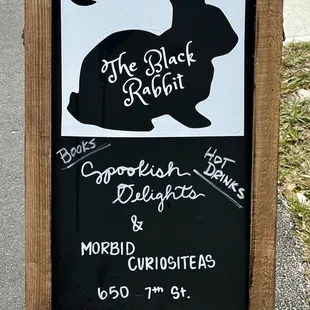 The Black
Rabbit
Books
Spookish
Delights
HOT
DRINKS
&
MORBID
CURIOSITEAS
650 7th St.